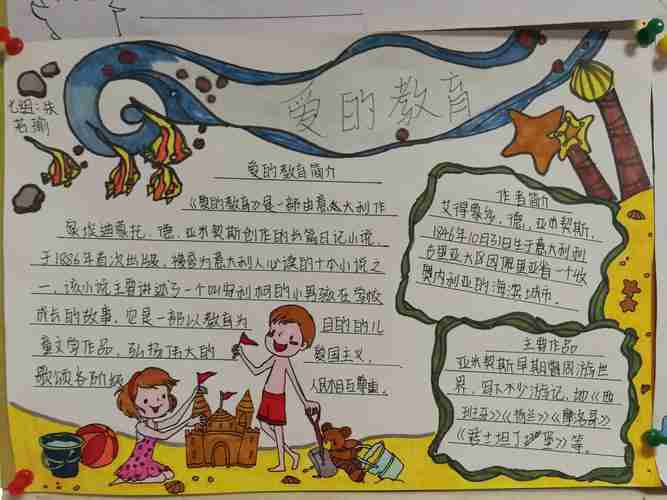 爱的教育
七组:朱
若瑜
爱的教育简介
《爱的教育》是一部由意大利作
家埃迪蒙托·德·亚米契斯创作的长篇日记小说,
于1886年首次出版,被誉为意大利人必读的十本小说之
一,该小说主要讲述了一个叫安利柯的小男孩在学校
成长的故事,它是一部以教育为目的的儿
童文学作品,弘扬伟大的爱国主义,
歌颂各阶级人民相互尊重。
作者简介
艾得蒙多·德·亚米契斯,
1846年10月31日生于意大利利
古里亚大区因佩里亚省一个
奥内利亚的海滨城市。
主要作品
亚米契斯早期周游世
界,写下不少游记,《西
班牙》《荷兰》《摩洛哥》
《君士坦丁堡》等。